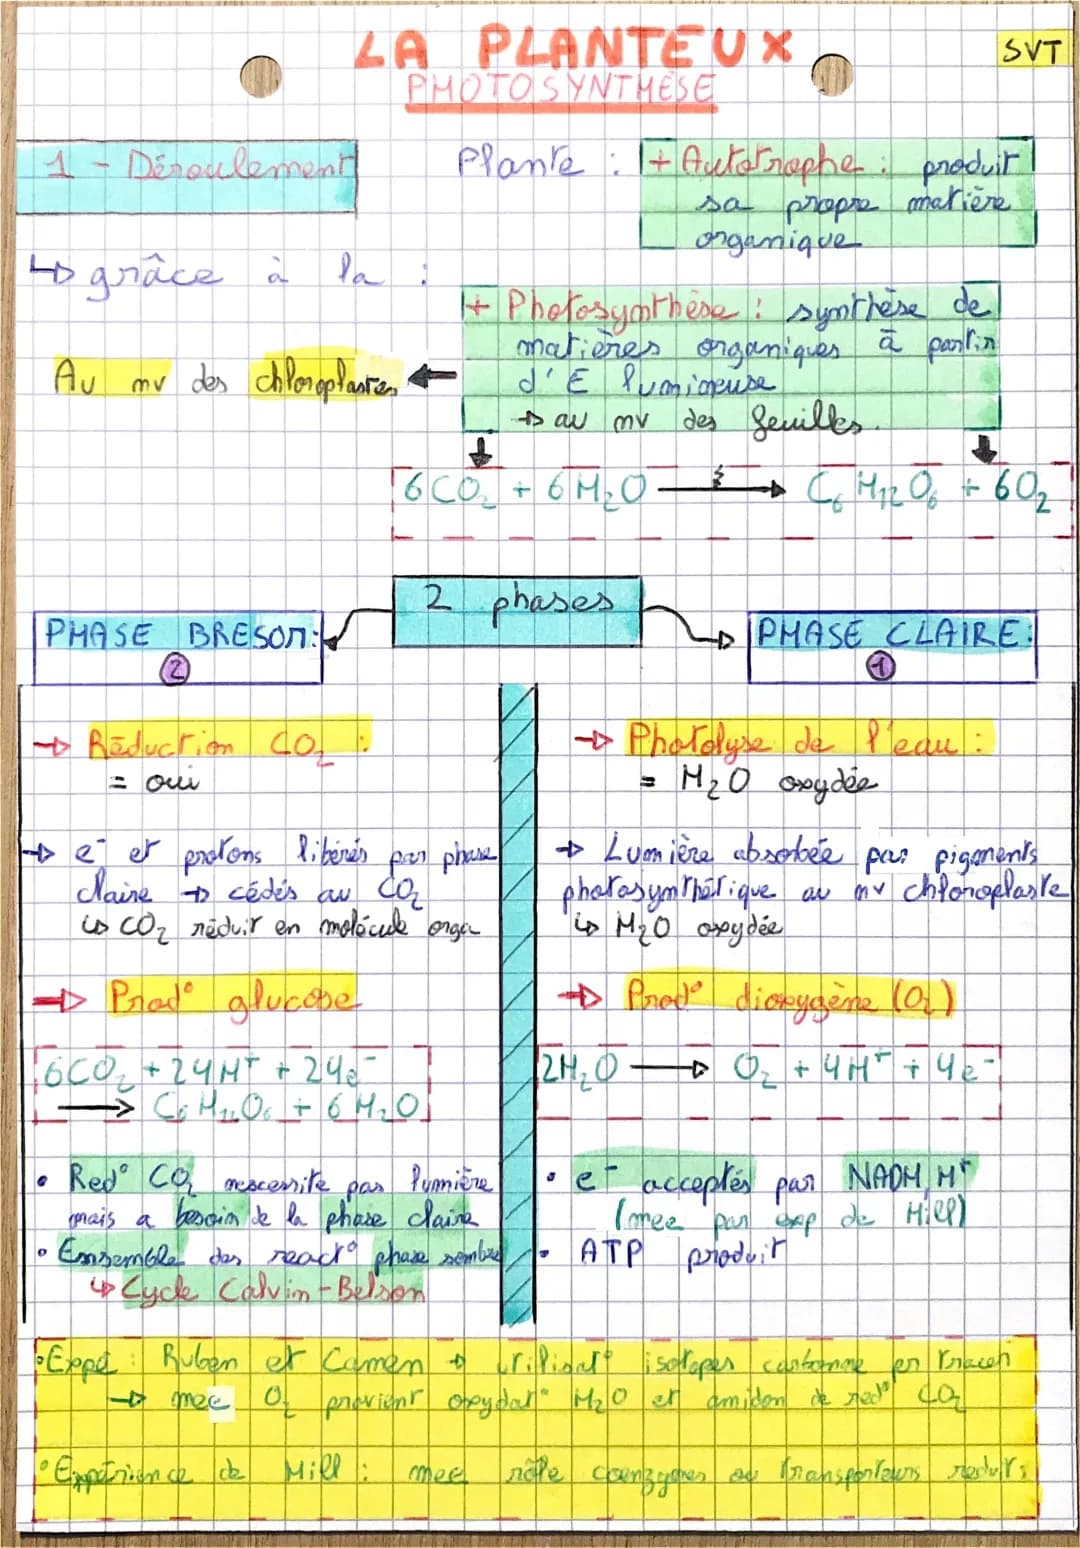 LA PLANTEUX
SVT
PHOTOSYNTHESE
1 - Déroulement
Plante :
+ Autotrophe : produit
sa propre matière
organique
↳ grâce à la :
+ Photosynthèse : synthèse de
matières organiques à partir
d'E lumineuse
→ au nv des feuilles.
Au nv des chloroplastes ←
6CO₂ + 6H₂O → C₆H₁₂O₆ + 6O₂
2 phases
PHASE BRESON:
②
→ Réduction CO₂ :
= oui
→ e⁻ et protons libérés par phase
claire → cédés au CO₂
↳ CO₂ réduit en molécule orga
→ Prod° glucose
6CO₂ + 24H⁺ + 24e⁻
→ C₆H₁₂O₆ + 6H₂O
• Red° CO₂ nescessite pas lumière
mais a besoin de la phase claire
• Ensemble des react° phase sombre
↳ Cycle Calvin-Belson
PHASE CLAIRE:
①
→ Photolyse de l'eau :
= H₂O oxydée
→ Lumière absorbée par pigments
photosynthétique au nv chloroplaste
↳ H₂O oxydée
→ Prod° dioxygène (O₂)
2H₂O → O₂ + 4H⁺ + 4e⁻
• e⁻ acceptés par NADH, H⁺
(mee par exp de Hill)
• ATP produit
• Expé : Ruben et Camen → utilisat° isotopes carbonne en
→ mee O₂ provient oxydat° H₂O et amidon de red° CO₂
• Expérience de Hill : mee rôle coenzymes ou transporteurs réduits